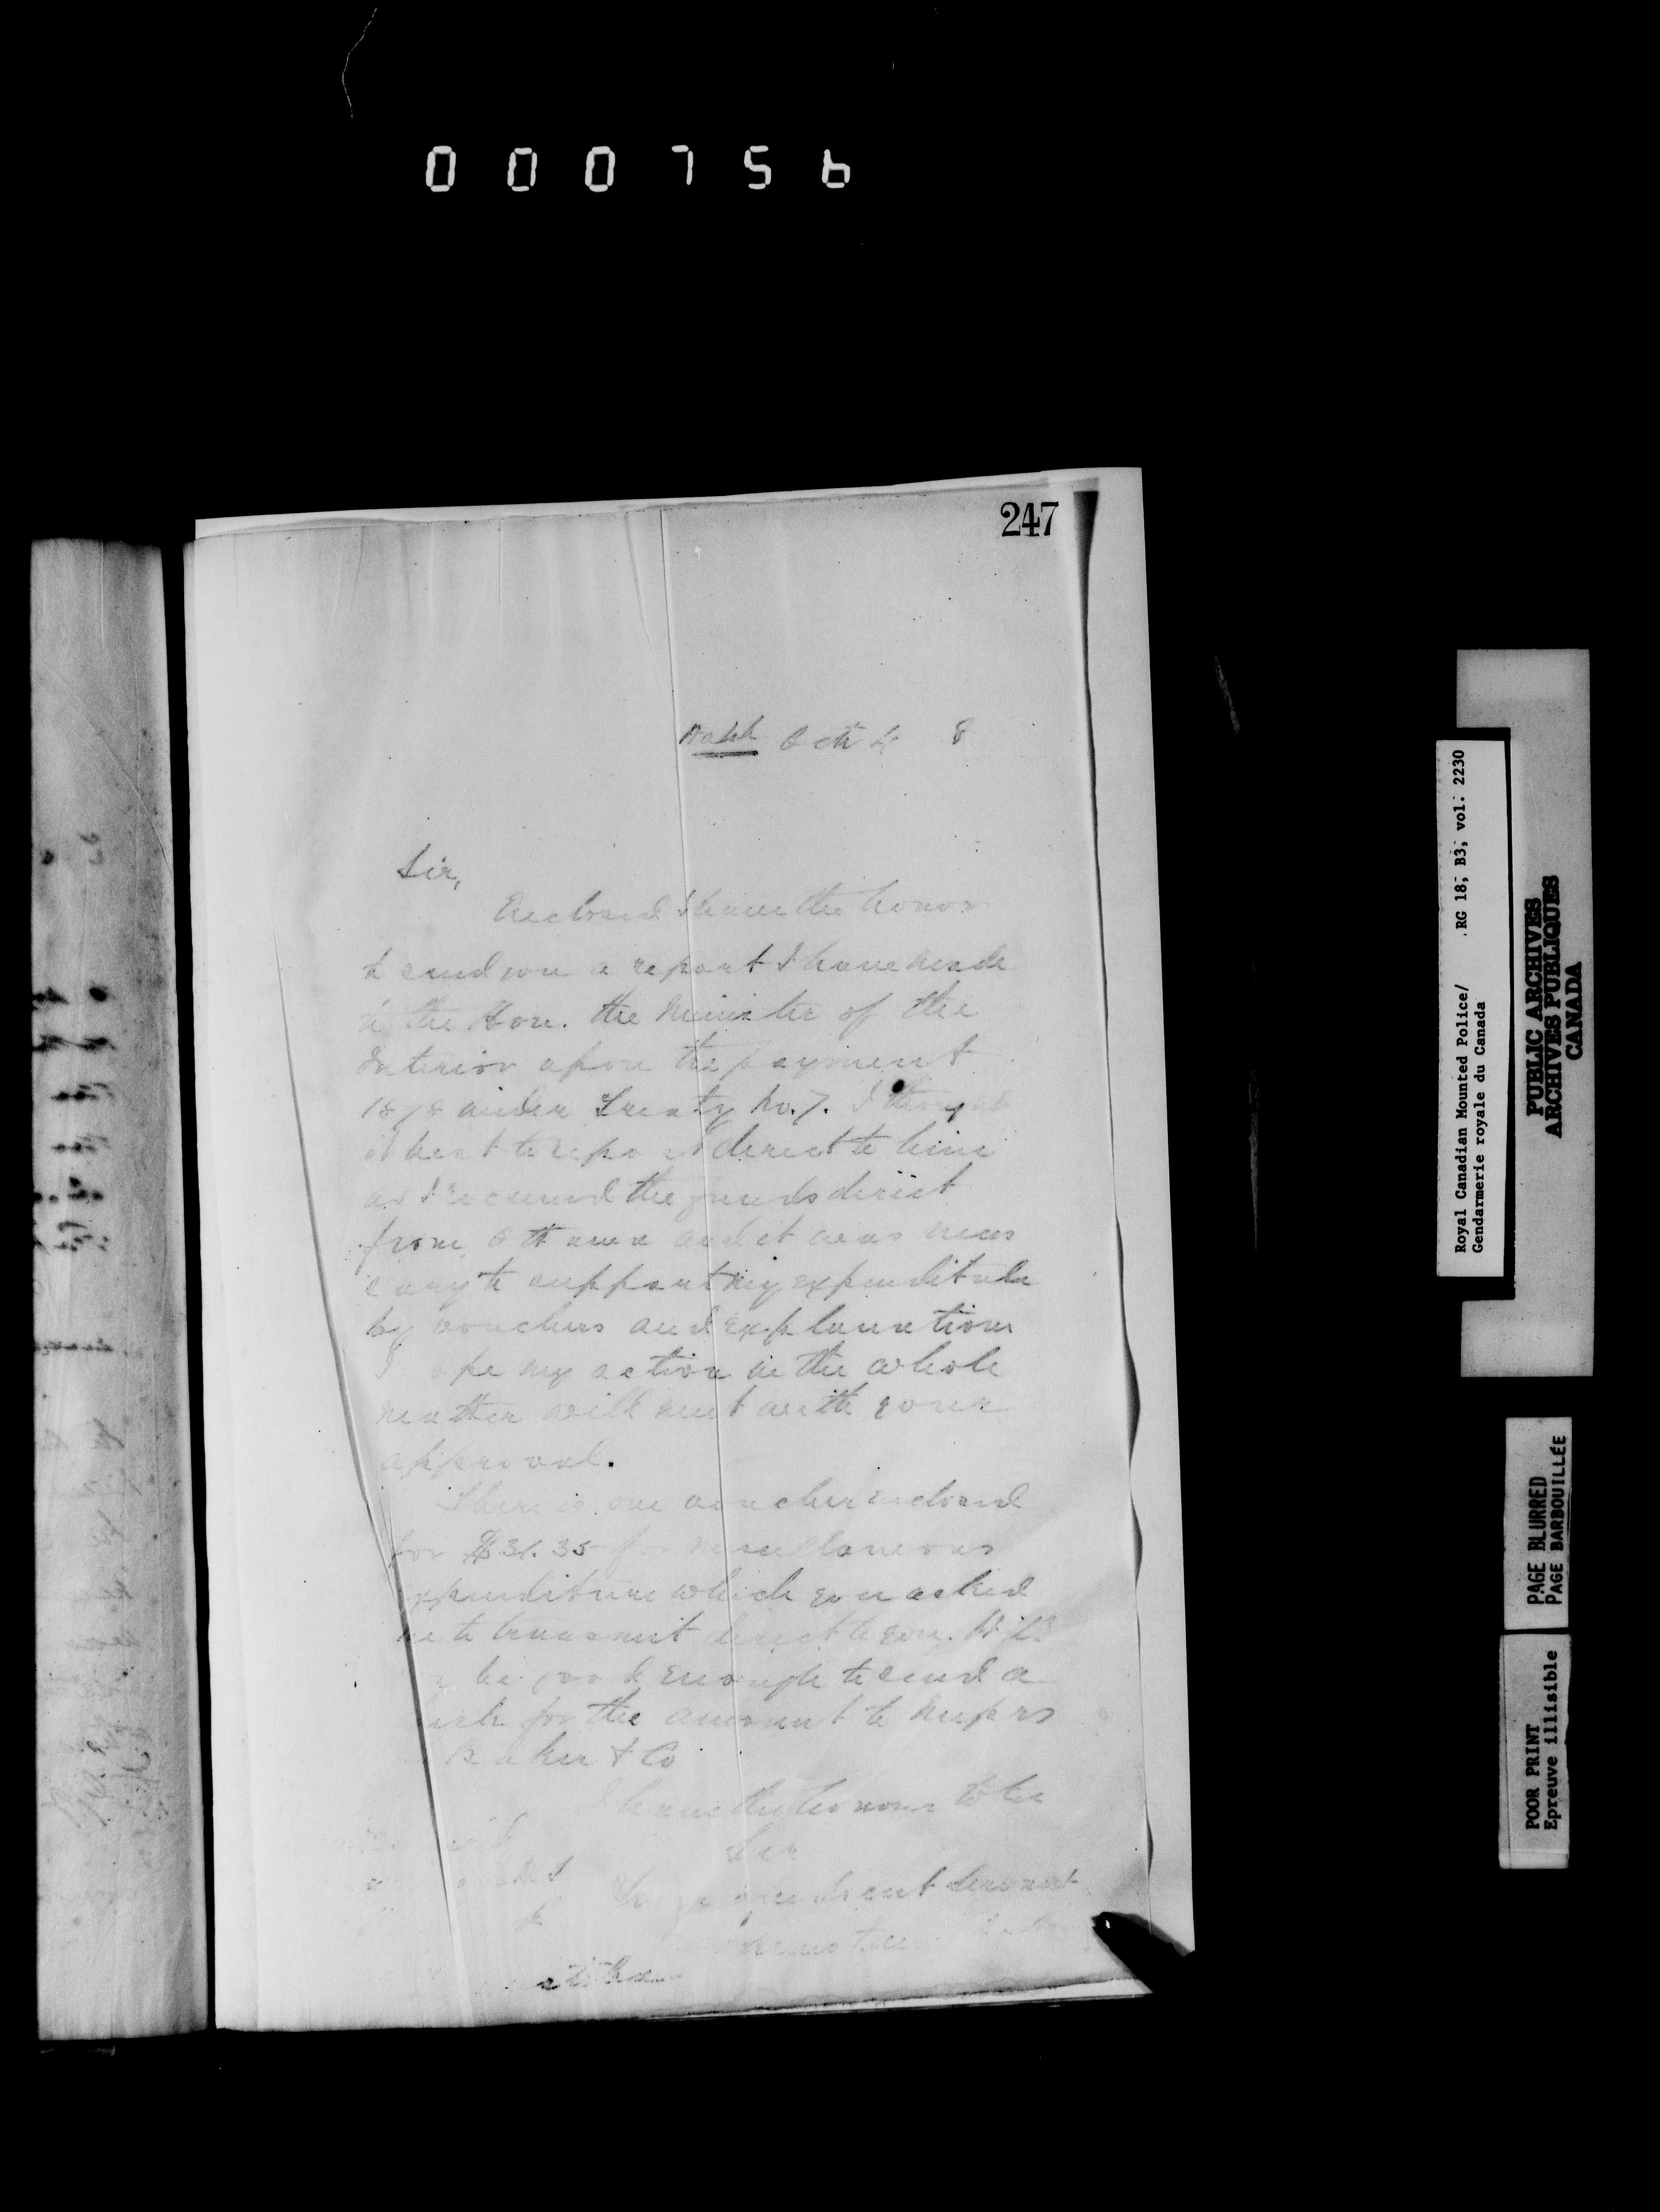 000756
247
Walsh Oct 4 8
Sir,
Enclosed I have the honor
to send you a report I have made
to the Hon. the Minister of the
Interior upon the payment
1878 under Treaty No. 7. I thought
it best to report direct to him
as I received the funds direct
from Ottawa and it was neces
sary to support my expenditure
by vouchers and explanations
I ope my action in the whole
matter will meet with your
approval.
There is one voucher enclosed
for $31.35 for miscellaneous
expenditure which you asked
me to transmit direct to you. Will
be good enough to send a
for the amount to Messrs
Baker & Co
I have the honour to be
Sir
Your obedient servant
Royal Canadian Mounted Police/ RG 18, B3, vol. 2230
Gendarmerie royale du Canada
PUBLIC ARCHIVES
ARCHIVES PUBLIQUES
CANADA
PAGE BLURRED
PAGE BARBOUILLÉE
POOR PRINT
Epreuve illisible